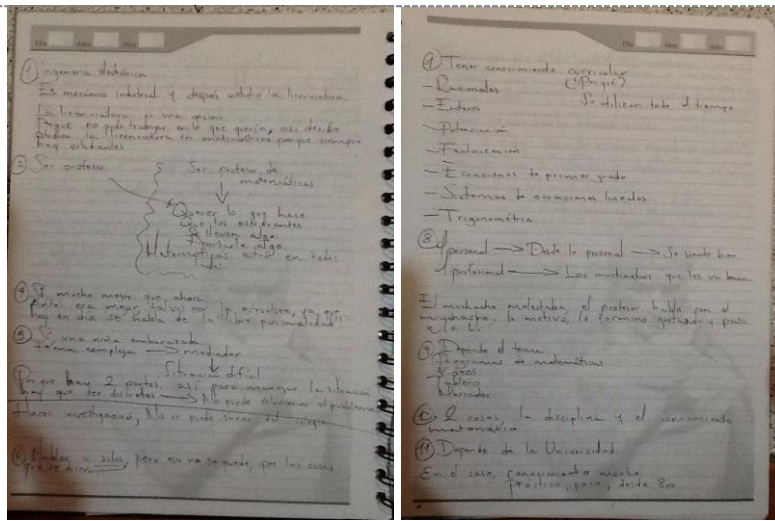 Día Mes Año
① ingeniería electrónica
Es mecánico industrial y después estudió la licenciatura
La licenciatura es una opción
Porque no pudo trabajar en lo que quería, así decidió
estudiar la licenciatura en matemáticas porque siempre
hay estudiantes
② Ser profesor
Ser profesor de
matemáticas
Querer lo que hace
Que los estudiantes
se lleven algo
Aportarle algo
Matemáticas están en todos
lados
④ Sí, mucho mejor que ahora
Antes era mejor
hoy en día se habla de la libre personalidad
⑤ Sí una niña embarazada
tema complejo → mediador
Situación difícil
Porque hay 2 partes, así para manejar la situación
hay que ser discretos → No puede solucionar el problema
Hacer investigación, No se puede sacar del colegio
⑥ Hablar a solas, pero eso no se puede, por las cosas
que se dicen
Día Mes Año
Tener conocimiento curricular
(¿Por qué?)
- Racionales
Se utilizan todo el tiempo
- Enteros
- Potenciación
- Factorización
- Ecuaciones de primer grado
- Sistemas de ecuaciones lineales
- Trigonometría
⑧ personal → Desde lo personal → Se siente bien
profesional → Los muchachos que les va bien
El muchacho molestaba, el profesor habló con el
muchacho, lo motivó, le terminó gustando y pasó
⑨ Depende el tema
Programas de matemáticas
Videos
Tablero
Marcador
⑩ 2 cosas, la disciplina y el conocimiento
matemático
⑪ Depende de la Universidad
En el caso, conocimiento mucho
práctica, poco, desde 8vo